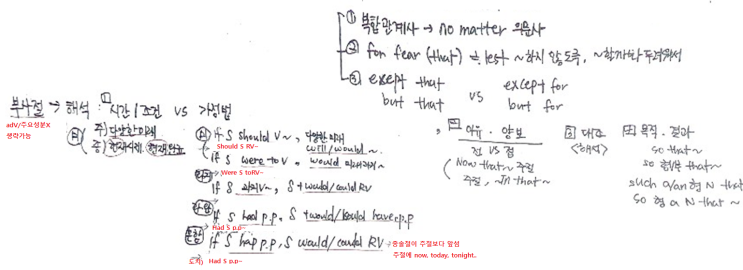 ① 복합관계사 → no matter 의문사
② for fear (that) ≒ lest ~하지 않도록, ~할까봐 두려워서
③ except that vs except for
but that but for
부사절 → 해석 : ① 시간/조건 vs 가정법
adV/주요성분X
생략가능
주) 단순한미래
종) 현재시제 현재완료
if S should V~,
Should S RV~
will/would ~.
if S were to V~, would
Were S toRV~
if S 과거V~, S + would/could RV
if S had p.p, S + would/could have p.p
Had S p.p~
혼합 if S had p.p, S would/could RV
도치) Had S p.p~
종속절이 주절보다 앞섬
주절에 now, today, tonight..
이유 · 양보
전 vs 접
Now that~ 주절
주절, ~ In that~
대조
<해석>
목적 · 결과
so that~
so 형/부 that~
such a/an 형 N that
so 형 a N that ~